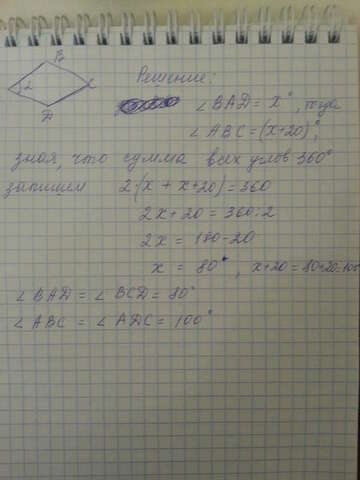 B
2
C
D
Решение:
∠BAD = x°, тогда
∠ABC = (x+20)°,
зная, что сумма всех углов 360°
запишем 2·(x + x+20) = 360
2x + 20 = 360:2
2x = 180-20
x = 80°, x+20 = 80+20=100
∠BAD = ∠BCD = 80°
∠ABC = ∠ADC = 100°